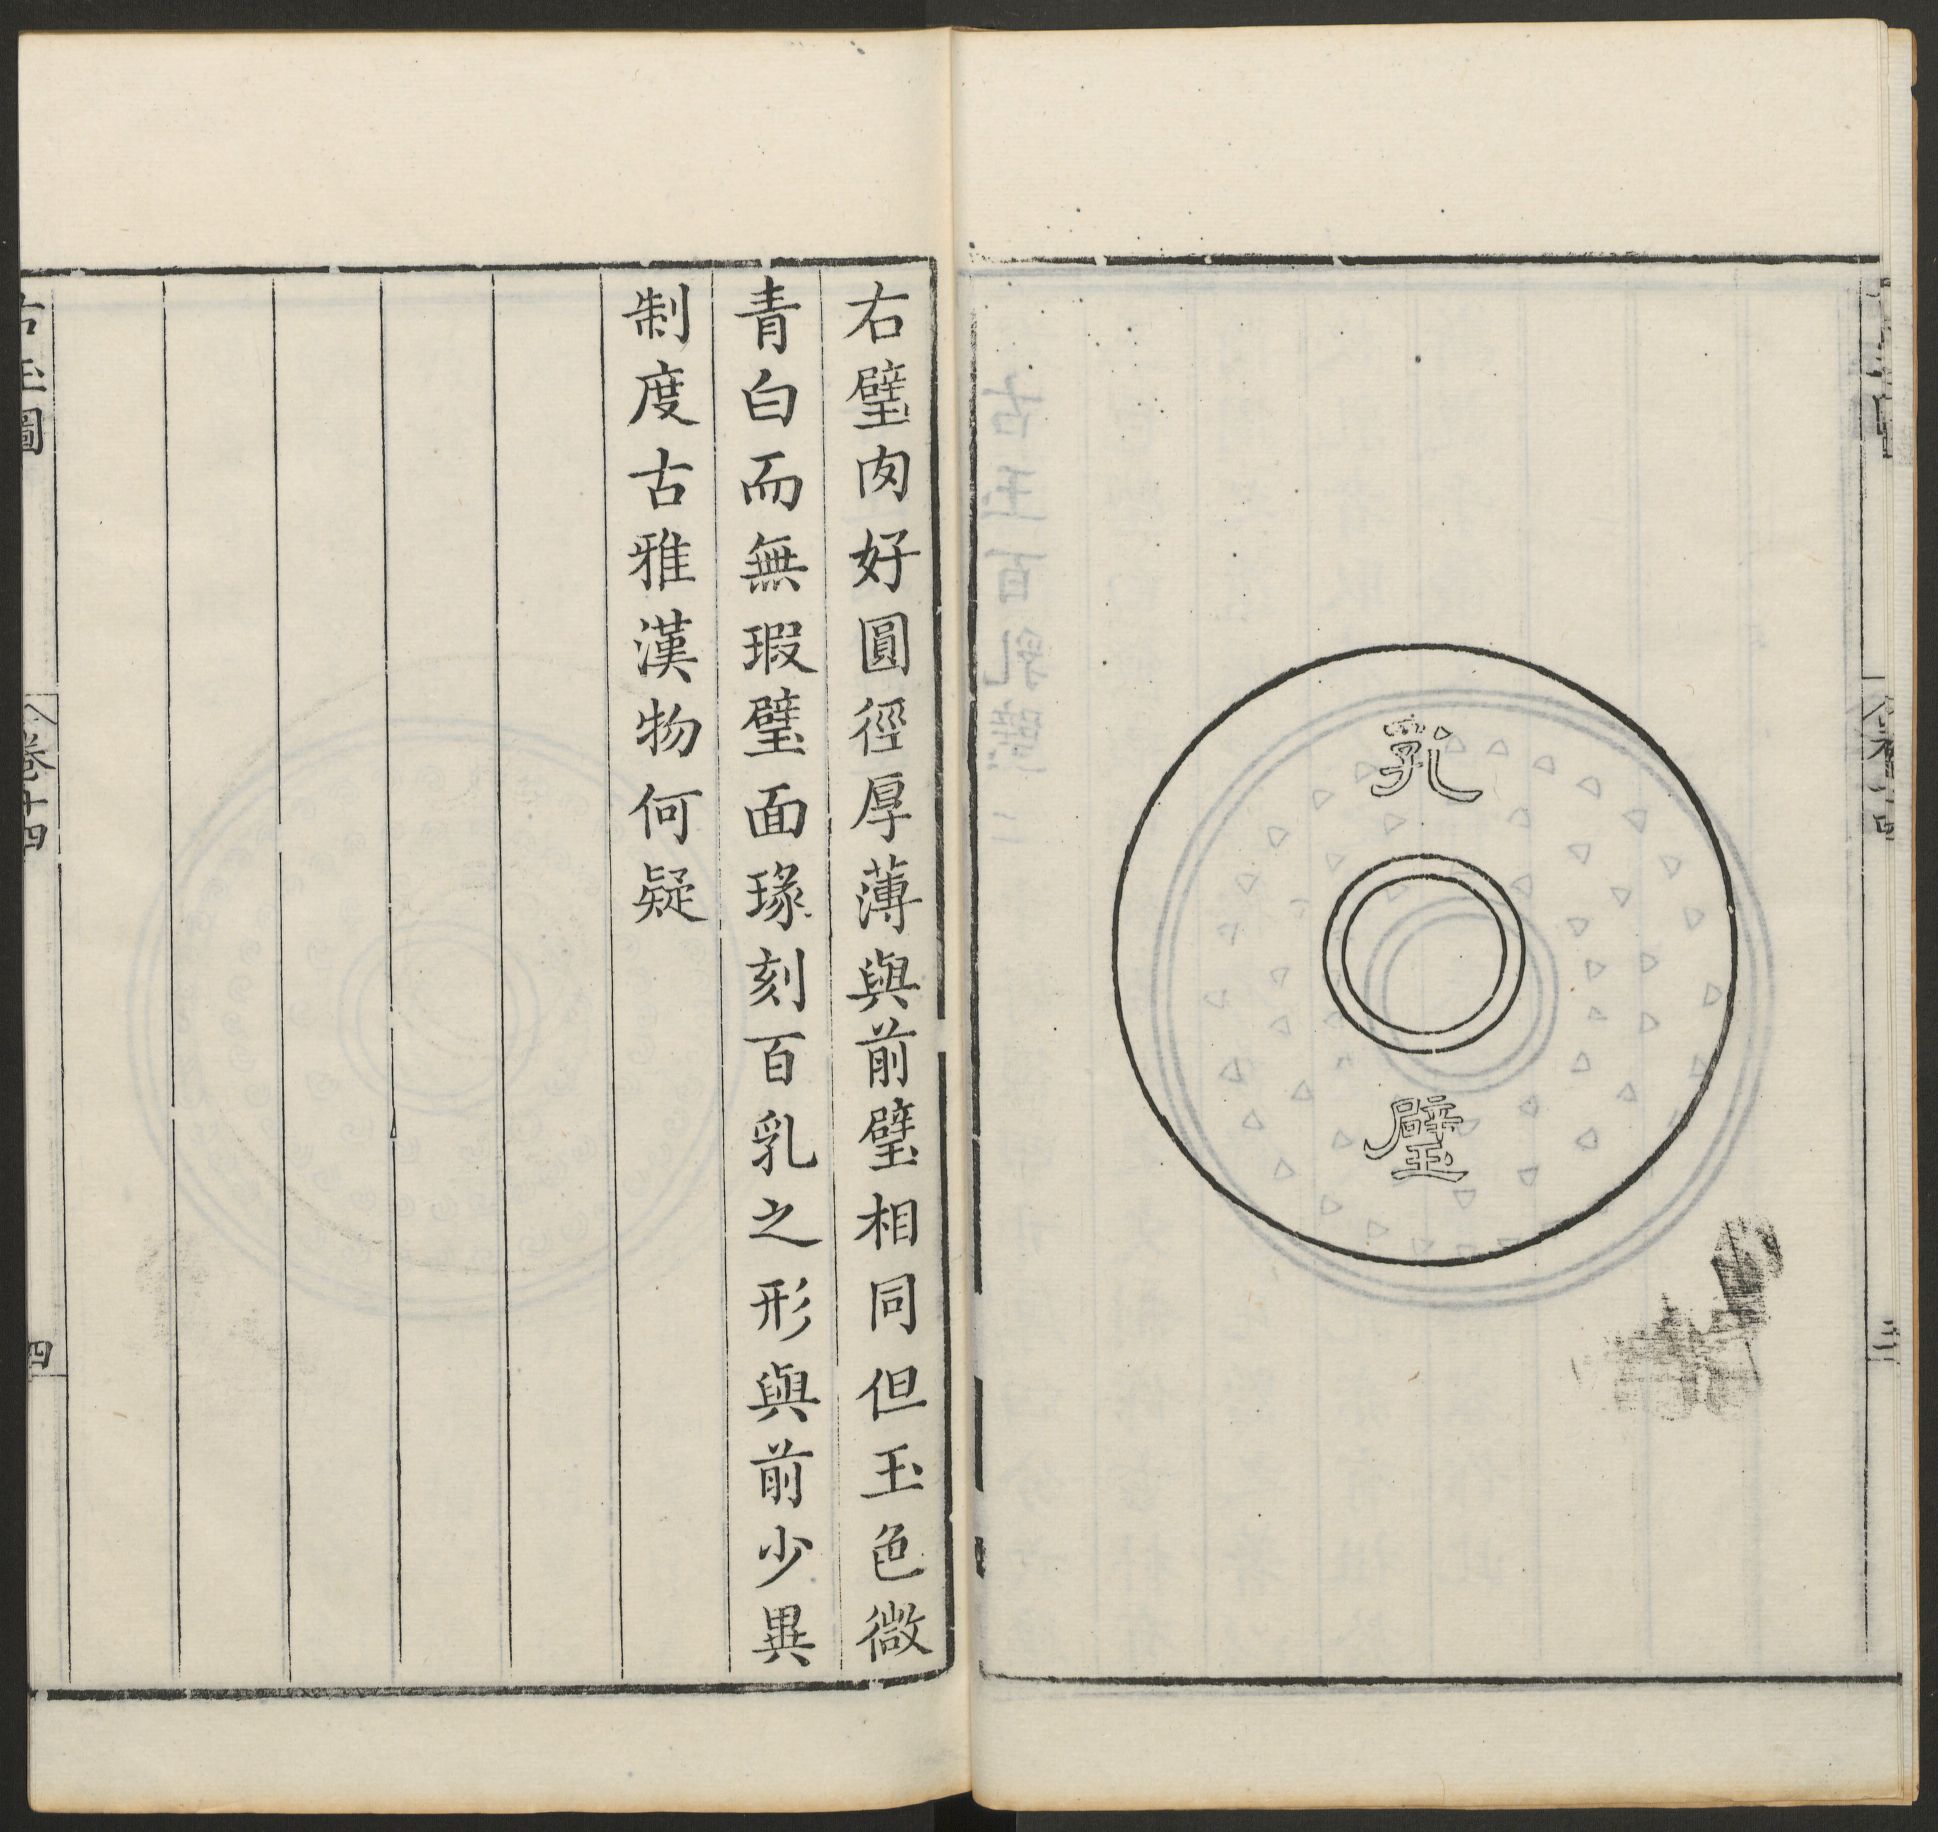 乳
璧
右璧肉好圓徑厚薄與前璧相同但玉色微
青白而無瑕璧面瑑刻百乳之形與前少異
制度古雅漢物何疑
古玉圖
卷十四
四